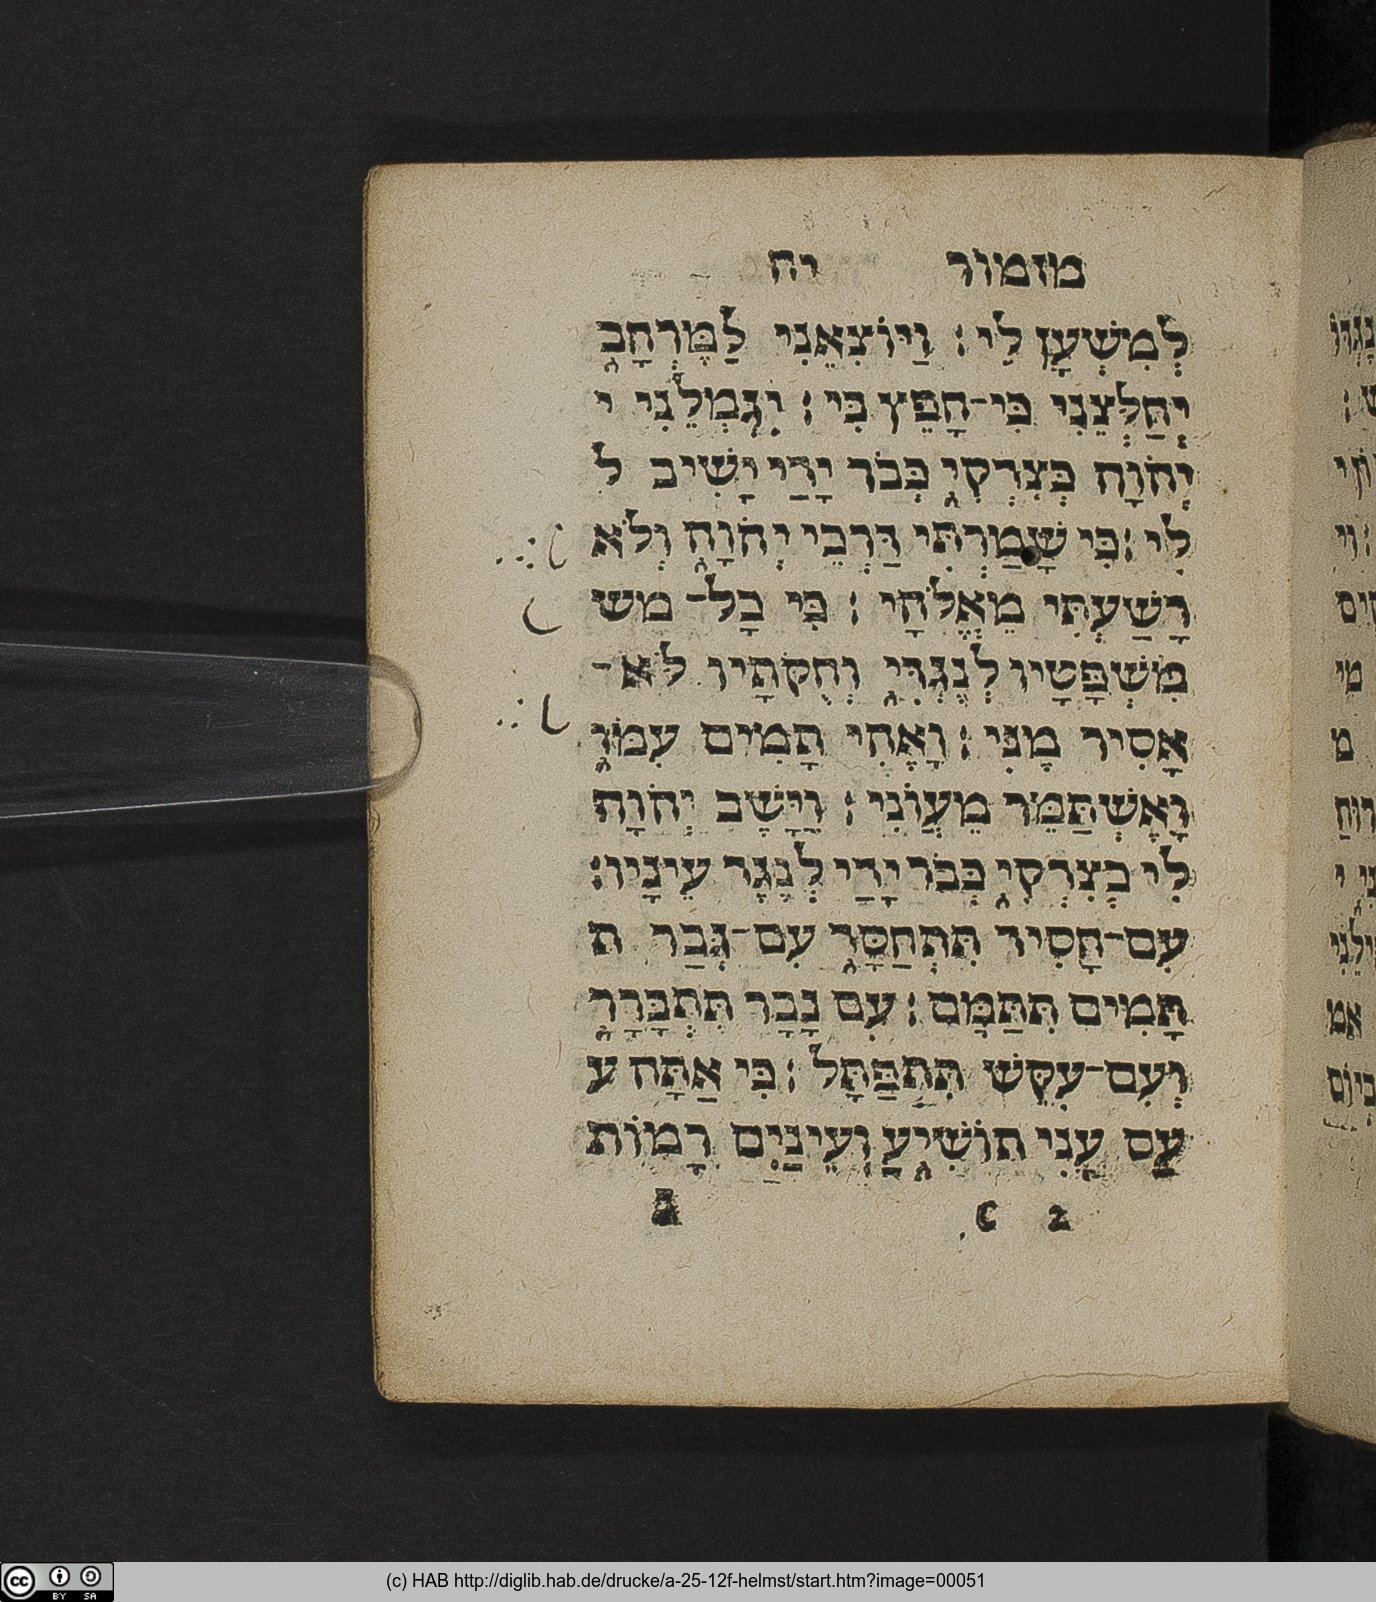 מזמור יח
לְמִשְׁעָן לִי׃ וַיּוֹצִאֵנִי לַמֶּרְחָב
יְחַלְּצֵנִי כִּי־חָפֵץ בִּי׃ יִגְמְלֵנִי י
יְהֹוָה כְּצִדְקִי כְּבֹר יָדַי יָשִׁיב ל
לִי׃ כִּי שָׁמַרְתִּי דַּרְכֵי יְהֹוָה וְלֹא
רָשַׁעְתִּי מֵאֱלֹהָי׃ כִּי כָל־ מש
מִשְׁפָּטָיו לְנֶגְדִּי וְחֻקֹּתָיו לֹא־
אָסִיר מֶנִּי׃ וָאֱהִי תָמִים עִמּוֹ
וָאֶשְׁתַּמֵּר מֵעֲוֹנִי׃ וַיָּשֶׁב יְהֹוָה
לִי כְצִדְקִי כְּבֹר יָדַי לְנֶגֶד עֵינָיו׃
עִם־חָסִיד תִּתְחַסָּד עִם־גְּבַר ת
תָּמִים תִּתַּמָּם׃ עִם נָבָר תִּתְבָּרָר
וְעִם־עִקֵּשׁ תִּתְפַּתָּל׃ כִּי אַתָּה ע
עַם עָנִי תוֹשִׁיעַ וְעֵינַיִם רָמוֹת